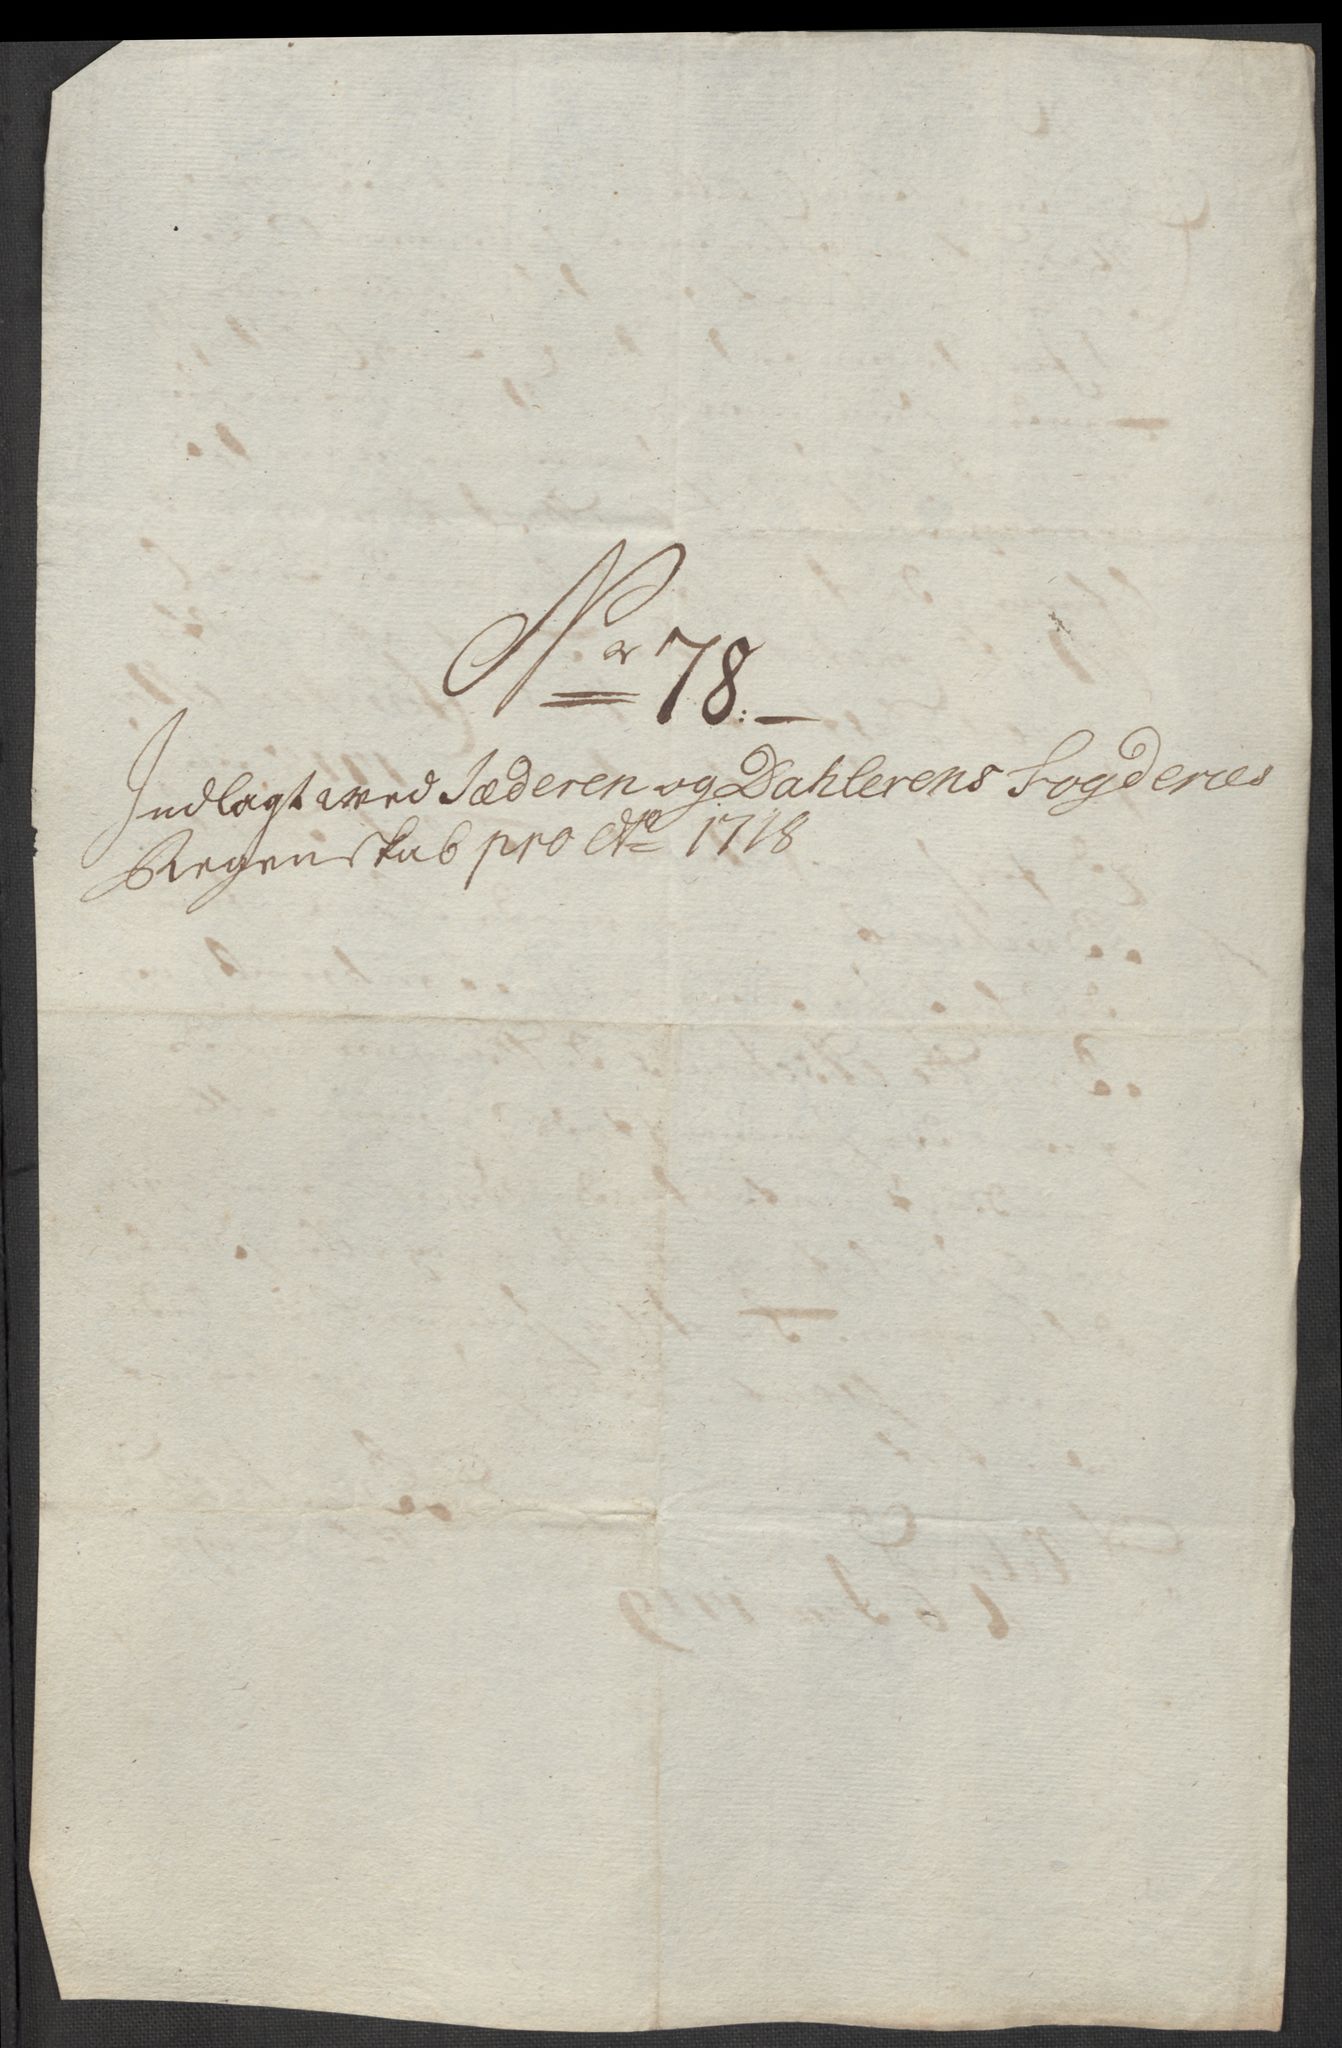 Nr 78:
Indlagt wed Jæderen og Dahlerens Fogderies
Regenskab pro Ao 1718